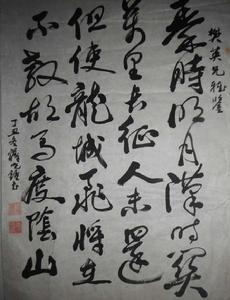 樊英兄雅鑒
秦時明月漢時關
萬里長征人未還
但使龍城飛將在
不教胡馬度陰山
丁丑冬